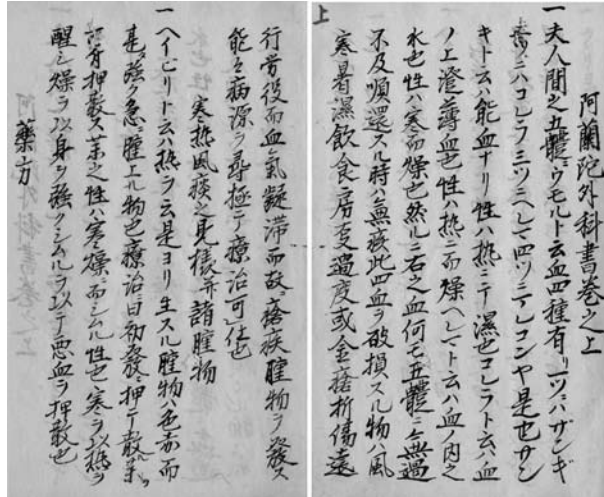 上
阿蘭陀外科書卷之上
一夫人間之五體ニウモルト云血四種有リ一ツニハサンギ
ニハコレラ三ツニヘレマ四ツニマレンコンヤ是也サン
キト云ハ能血ナリ性ハ熱ニ〆濕也コレラト云ハ血
ノ上澄薄血也性ハ熱ニ而燥ヘレマト云ハ血ノ内之
水也性ハ寒而燥也然ルニ右之血何モ五體ニ無過
不及順還スル時ハ無疾此四血ヲ破損スル物ハ風
寒暑濕飲食房至過度或金瘡折傷遠
行労役而血氣凝滞而故ニ瘡疾腫物ヲ發ス
能々病源ヲ尋極テ療治可仕也
寒熱風痰之見様并諸腫物
一ヘイヒリト云ハ熱ヲ云是ヨリ生スル腫物ハ色赤而
甚強ク急ニ腫上ル物也療治ニ曰初發ニ押テ散藥ヲ
押散ス藥之性ハ寒燥ニ而シムル性也寒ヲ以熱ヲ
醒シ燥ヲ以身ヲ強クシムルヲ以テ悪血ヲ押散也
藥方